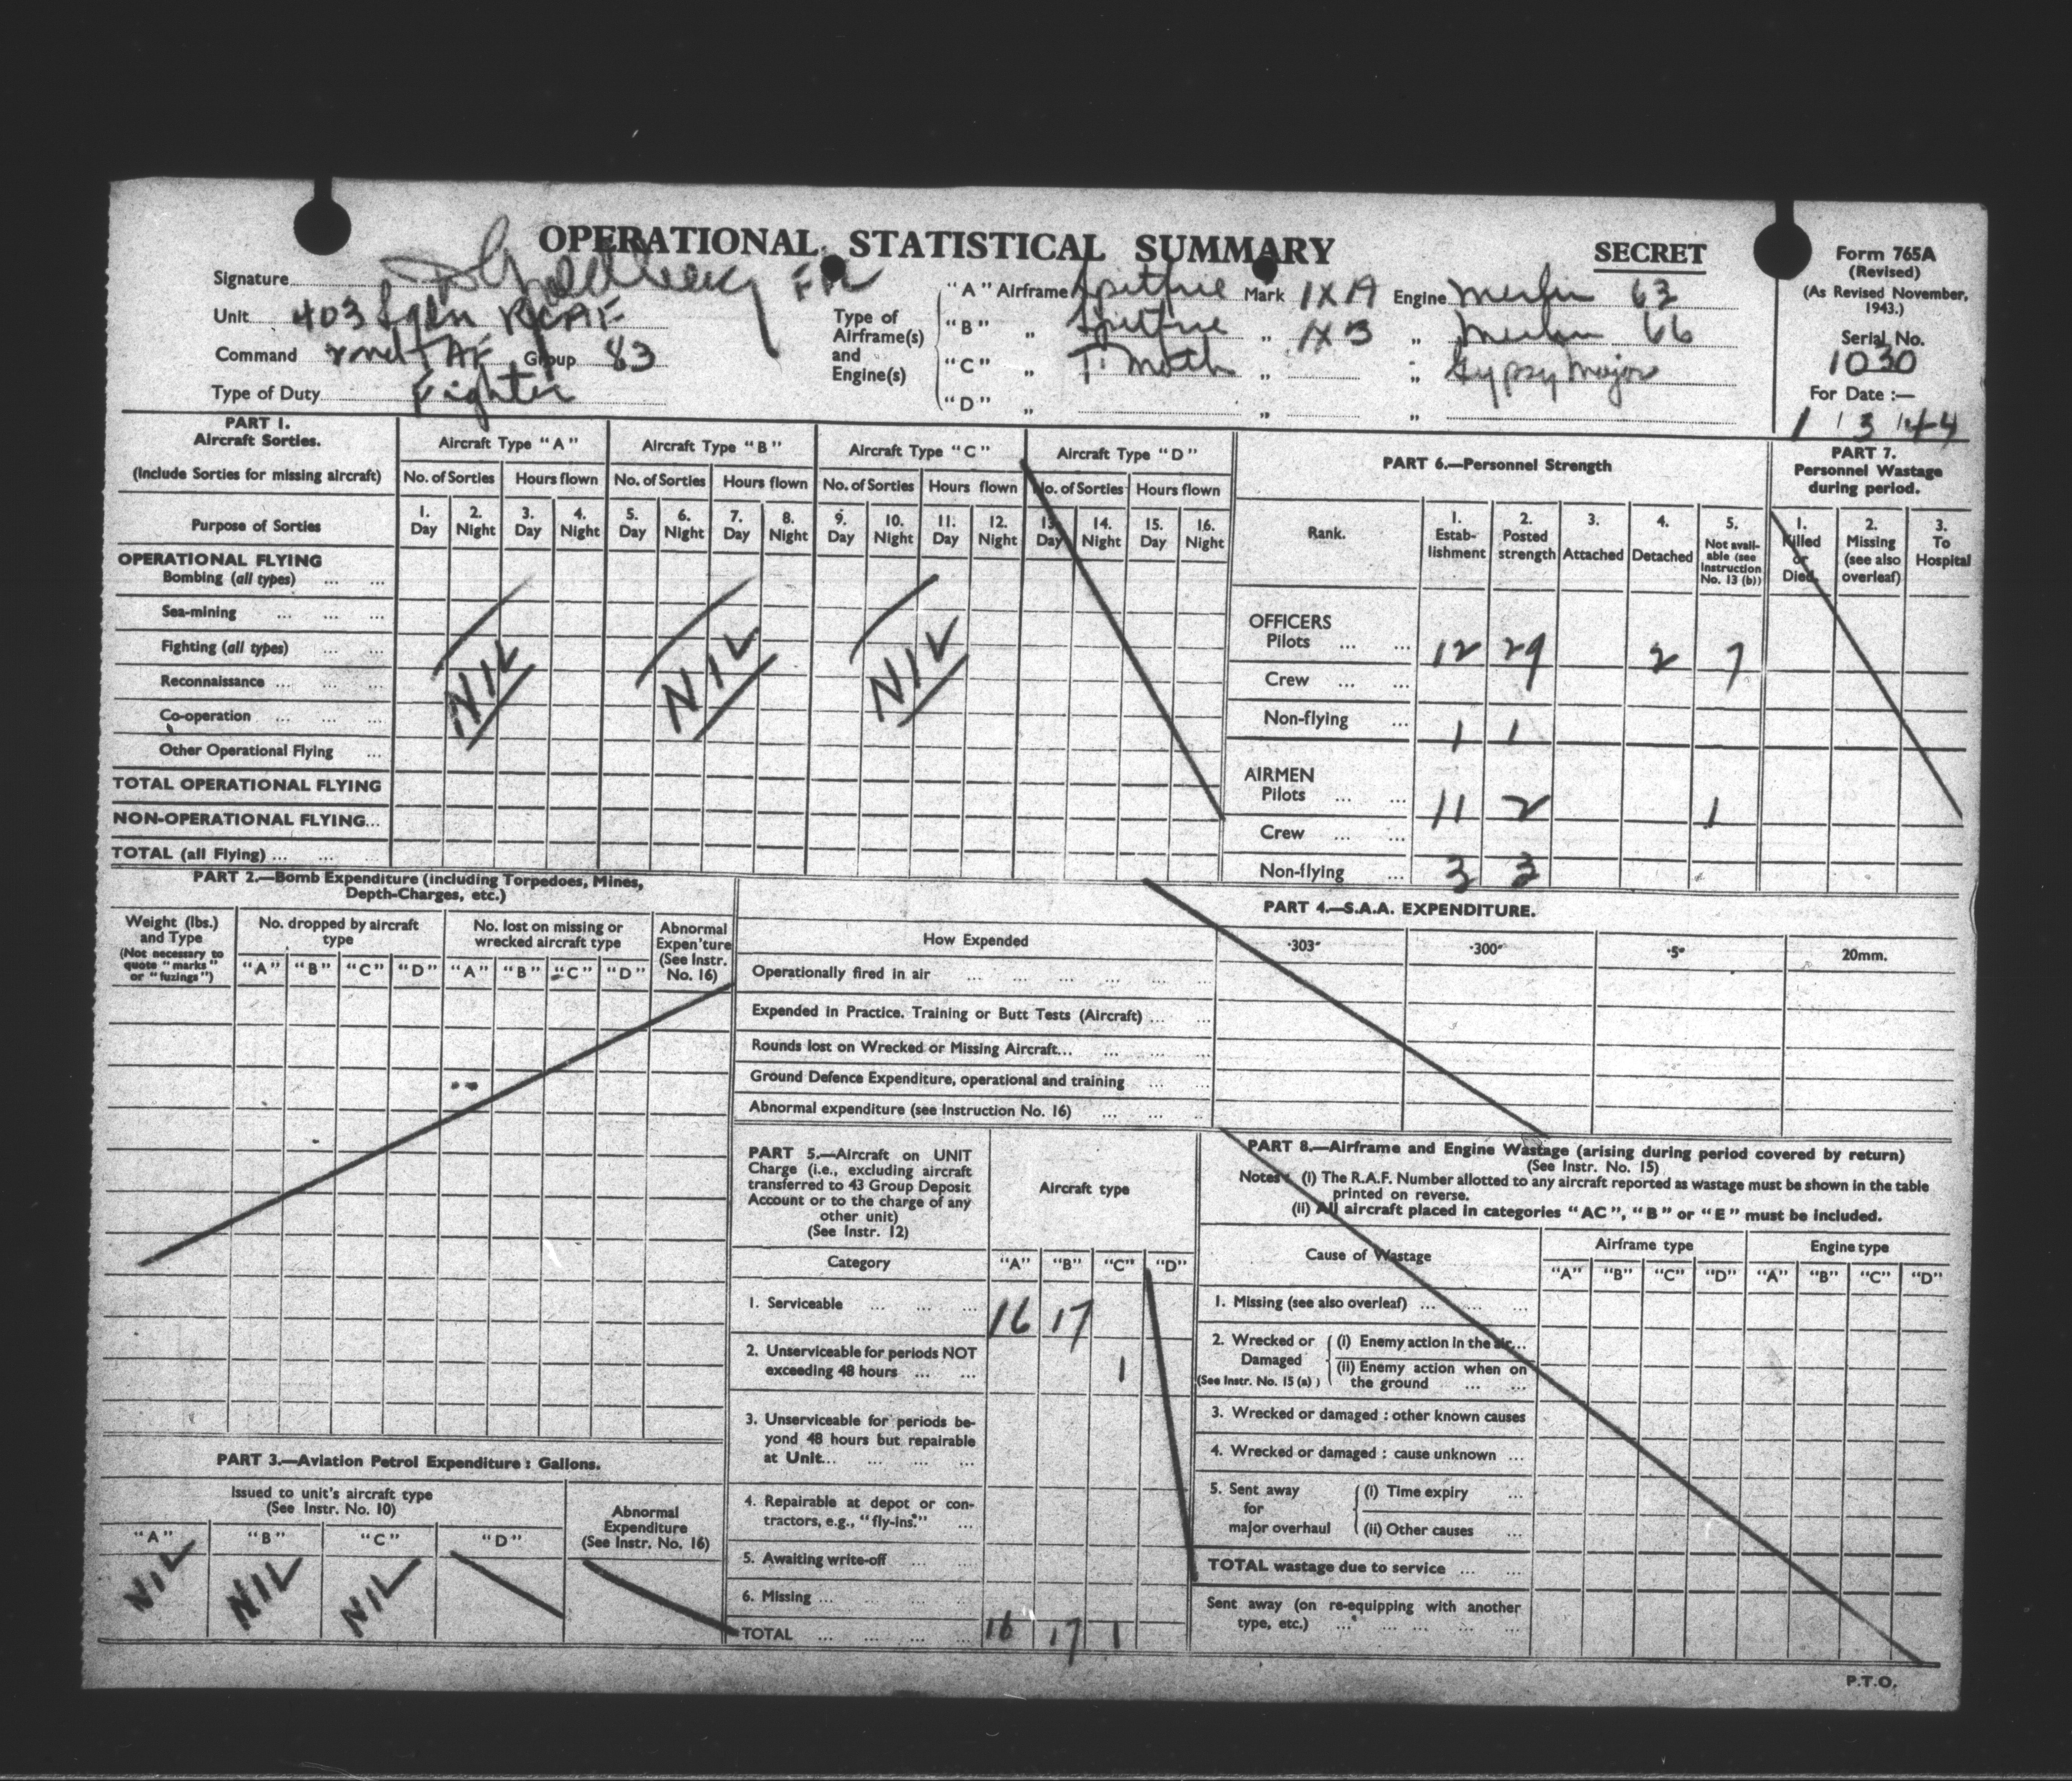 OPERATIONAL STATISTICAL SUMMARY
SECRET
Form 765A
(Revised)
(As Revised November,
1943.)
Serial No.
1030
For Date :—
1 3 44
Signature D Goldberg F/L
Unit 403 Sqdn RCAF
Command 2nd TAF Group 83
Type of Duty Fighter
Type of
Airframe(s)
and
Engine(s)
"A" Airframe Spitfire Mark IXA Engine Merlin 63
"B" „ Spitfire „ IXB „ Merlin 66
"C" „ T. Moth „ „ Gypsy Major
"D" „ „ „
PART 1.
Aircraft Sorties.
(Include Sorties for missing aircraft)
Purpose of Sorties
Aircraft Type "A" Aircraft Type "B" Aircraft Type "C" Aircraft Type "D"
No. of Sorties Hours flown No. of Sorties Hours flown No. of Sorties Hours flown No. of Sorties Hours flown
1. 2. 3. 4. 5. 6. 7. 8. 9. 10. 11. 12. 13. 14. 15. 16.
Day Night Day Night Day Night Day Night Day Night Day Night Day Night Day Night
OPERATIONAL FLYING
Bombing (all types) ... ...
Sea-mining ... ... ...
Fighting (all types) ... ...
Reconnaissance ... ... ...
Co-operation ... ... ...
Other Operational Flying ...
TOTAL OPERATIONAL FLYING
NON-OPERATIONAL FLYING...
TOTAL (all Flying) ... ... ...
NIL NIL NIL
PART 6.—Personnel Strength
Rank.
1. Estab-lishment
2. Posted strength
3. Attached
4. Detached
5. Not avail-able (see Instruction No. 13 (b))
OFFICERS
Pilots ... ... 12 29 2 7
Crew ... ...
Non-flying ... 1 1
AIRMEN
Pilots ... ... 11 2 1
Crew ... ...
Non-flying ... 3 3
PART 7.
Personnel Wastage
during period.
1. Killed or Died.
2. Missing (see also overleaf)
3. To Hospital
PART 2.—Bomb Expenditure (including Torpedoes, Mines,
Depth-Charges, etc.)
Weight (lbs.)
and Type
(Not necessary to
quote "marks"
or "fuzings")
No. dropped by aircraft
type
No. lost on missing or
wrecked aircraft type
Abnormal
Expen'ture
(See Instr.
No. 16)
"A" "B" "C" "D" "A" "B" "C" "D"
PART 4.—S.A.A. EXPENDITURE.
How Expended ·303" ·300" ·5" 20mm.
Operationally fired in air ... ... ... ... ...
Expended in Practice, Training or Butt Tests (Aircraft) ... ...
Rounds lost on Wrecked or Missing Aircraft... ... ... ...
Ground Defence Expenditure, operational and training ... ...
Abnormal expenditure (see Instruction No. 16) ... ... ...
PART 5.—Aircraft on UNIT
Charge (i.e., excluding aircraft
transferred to 43 Group Deposit
Account or to the charge of any
other unit)
(See Instr. 12)
Aircraft type
Category "A" "B" "C" "D"
1. Serviceable ... ... ... 16 17
2. Unserviceable for periods NOT
exceeding 48 hours ... ... 1
3. Unserviceable for periods be-
yond 48 hours but repairable
at Unit... ... ... ...
4. Repairable at depot or con-
tractors, e.g., "fly-ins." ...
5. Awaiting write-off ... ...
6. Missing ... ... ... ...
TOTAL ... ... ... ... 16 17 1
PART 8.—Airframe and Engine Wastage (arising during period covered by return)
(See Instr. No. 15)
Notes : (i) The R.A.F. Number allotted to any aircraft reported as wastage must be shown in the table
printed on reverse.
(ii) All aircraft placed in categories "AC", "B" or "E" must be included.
Cause of Wastage Airframe type Engine type
"A" "B" "C" "D" "A" "B" "C" "D"
1. Missing (see also overleaf) ... ... ...
2. Wrecked or Damaged (See Instr. No. 15 (a) )
(i) Enemy action in the air...
(ii) Enemy action when on
the ground ... ...
3. Wrecked or damaged : other known causes
4. Wrecked or damaged : cause unknown ...
5. Sent away for major overhaul
(i) Time expiry ...
(ii) Other causes ...
TOTAL wastage due to service ... ...
Sent away (on re-equipping with another
type, etc.) ... ... ... ... ...
PART 3.—Aviation Petrol Expenditure : Gallons.
Issued to unit's aircraft type
(See Instr. No. 10)
Abnormal
Expenditure
(See Instr. No. 16)
"A" "B" "C" "D"
NIL NIL NIL
P.T.O.